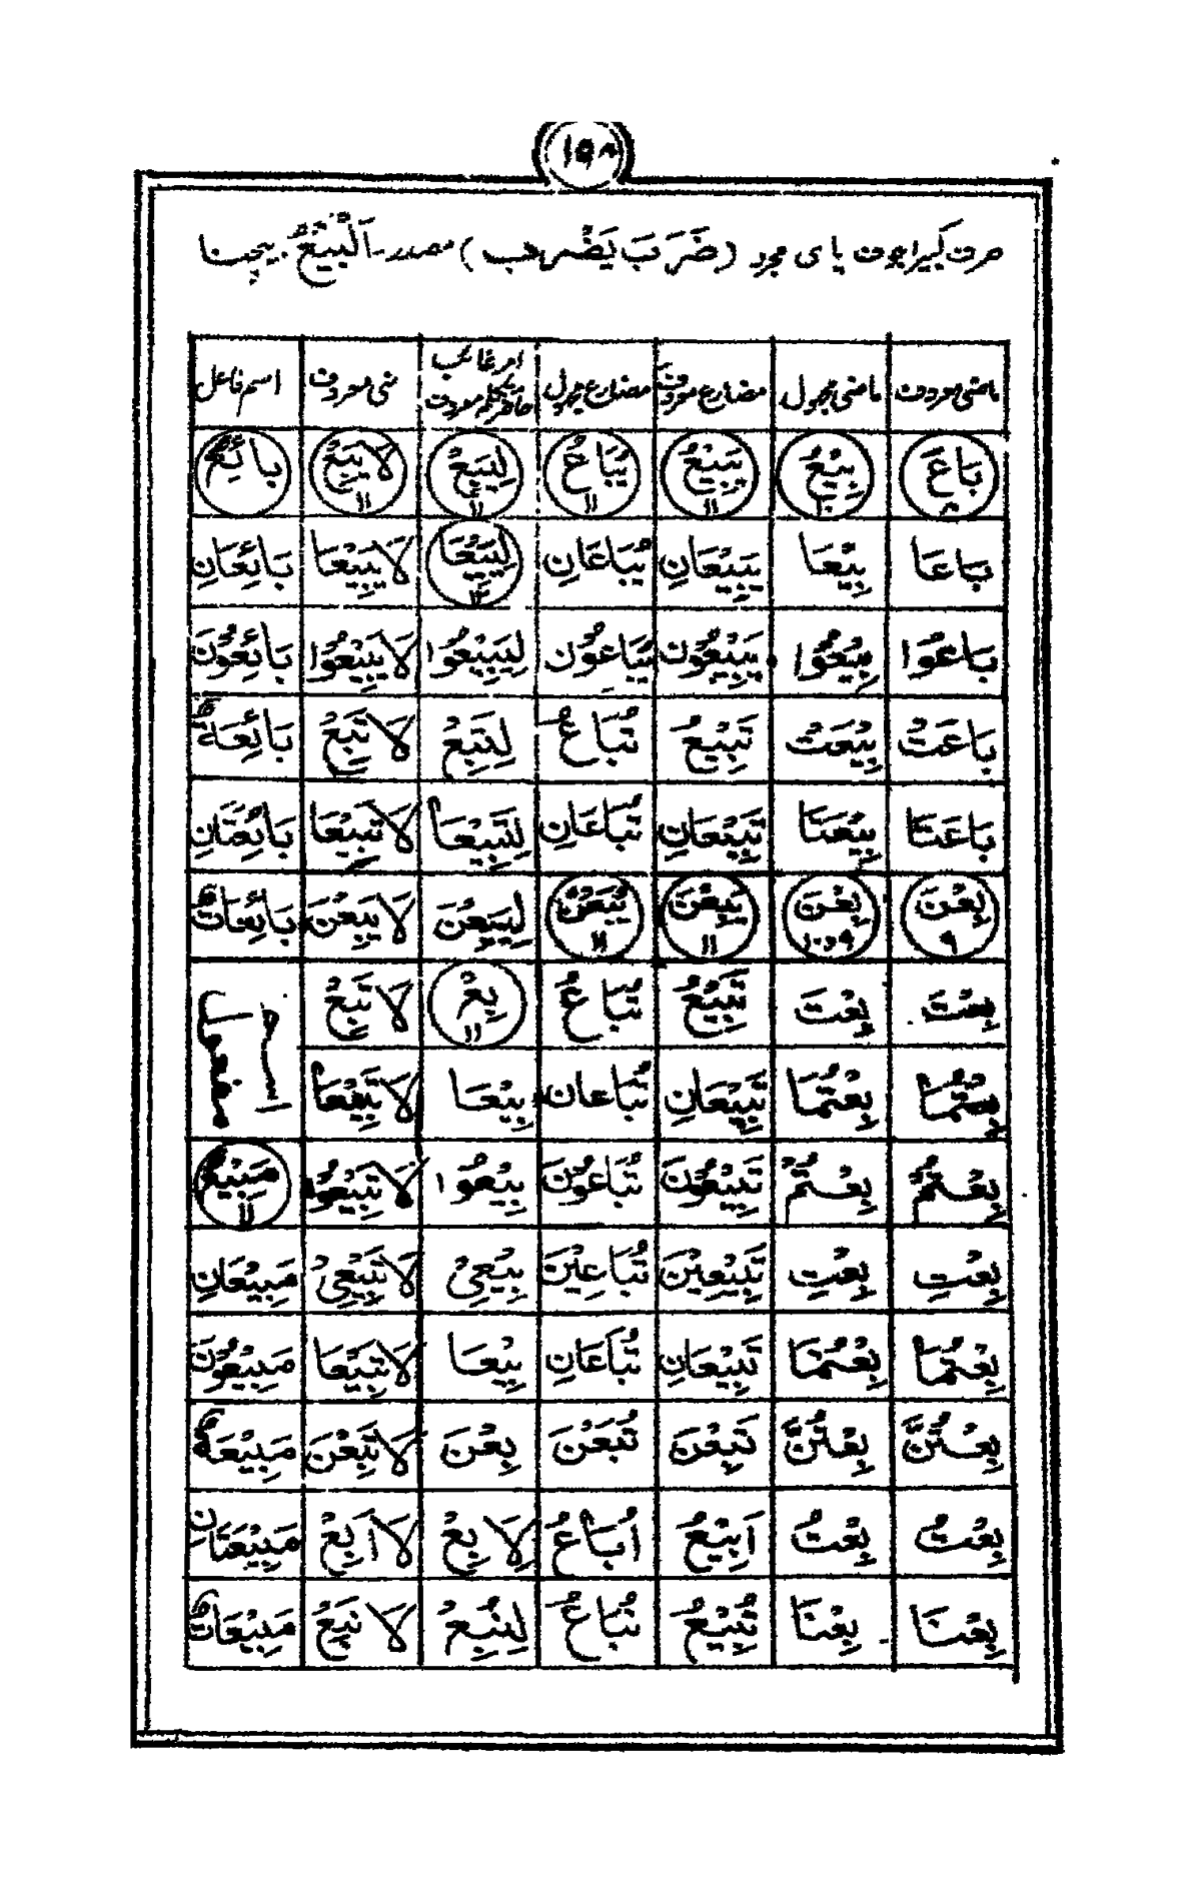 ۱۵۸
صرف کبیر اجوف یای مجرد (ضَرَبَ یَضْرِبُ) مصدر۔ اَلْبَیْعُ بیچنا
ماضی معروف ماضی مجہول مضارع معروف مضارع مجہول امر غائب حاضر متکلم معروف نہی معروف اسم فاعل
بَاعَ ۸ بِیْعَ ۱۰ یَبِیْعُ ۱۱ یُبَاعُ ۱۱ لِیَبِعْ ۱۱ لَا یَبِعْ ۱۱ بَائِعٌ
بَاعَا بِیْعَا یَبِیْعَانِ یُبَاعَانِ لِیَبِیْعَا ۱۲ لَا یَبِیْعَا بَائِعَانِ
بَاعُوْا بِیْعُوْا یَبِیْعُوْنَ یُبَاعُوْنَ لِیَبِیْعُوْا لَا یَبِیْعُوْا بَائِعُوْنَ
بَاعَتْ بِیْعَتْ تَبِیْعُ تُبَاعُ لِتَبِعْ لَا تَبِعْ بَائِعَةٌ
بَاعَتَا بِیْعَتَا تَبِیْعَانِ تُبَاعَانِ لِتَبِیْعَا لَا تَبِیْعَا بَائِعَتَانِ
بِعْنَ ۹ بِعْنَ ۹ و ۱۰ یَبِعْنَ ۱۱ یُبَعْنَ ۱۱ لِیَبِعْنَ لَا یَبِعْنَ بَائِعَاتٌ
بِعْتَ بِعْتَ تَبِیْعُ تُبَاعُ بِعْ ۱۱ لَا تَبِعْ اسم مفعول
بِعْتُمَا بِعْتُمَا تَبِیْعَانِ تُبَاعَانِ بِیْعَا لَا تَبِیْعَا
بِعْتُمْ بِعْتُمْ تَبِیْعُوْنَ تُبَاعُوْنَ بِیْعُوْا لَا تَبِیْعُوْا مَبِیْعٌ ۱۱
بِعْتِ بِعْتِ تَبِیْعِیْنَ تُبَاعِیْنَ بِیْعِیْ لَا تَبِیْعِیْ مَبِیْعَانِ
بِعْتُمَا بِعْتُمَا تَبِیْعَانِ تُبَاعَانِ بِیْعَا لَا تَبِیْعَا مَبِیْعُوْنَ
بِعْتُنَّ بِعْتُنَّ تَبِعْنَ تُبَعْنَ بِعْنَ لَا تَبِعْنَ مَبِیْعَةٌ
بِعْتُ بِعْتُ اَبِیْعُ اُبَاعُ لِاَبِعْ لَا اَبِعْ مَبِیْعَتَانِ
بِعْنَا بِعْنَا نَبِیْعُ نُبَاعُ لِنَبِعْ لَا نَبِعْ مَبِیْعَاتٌ